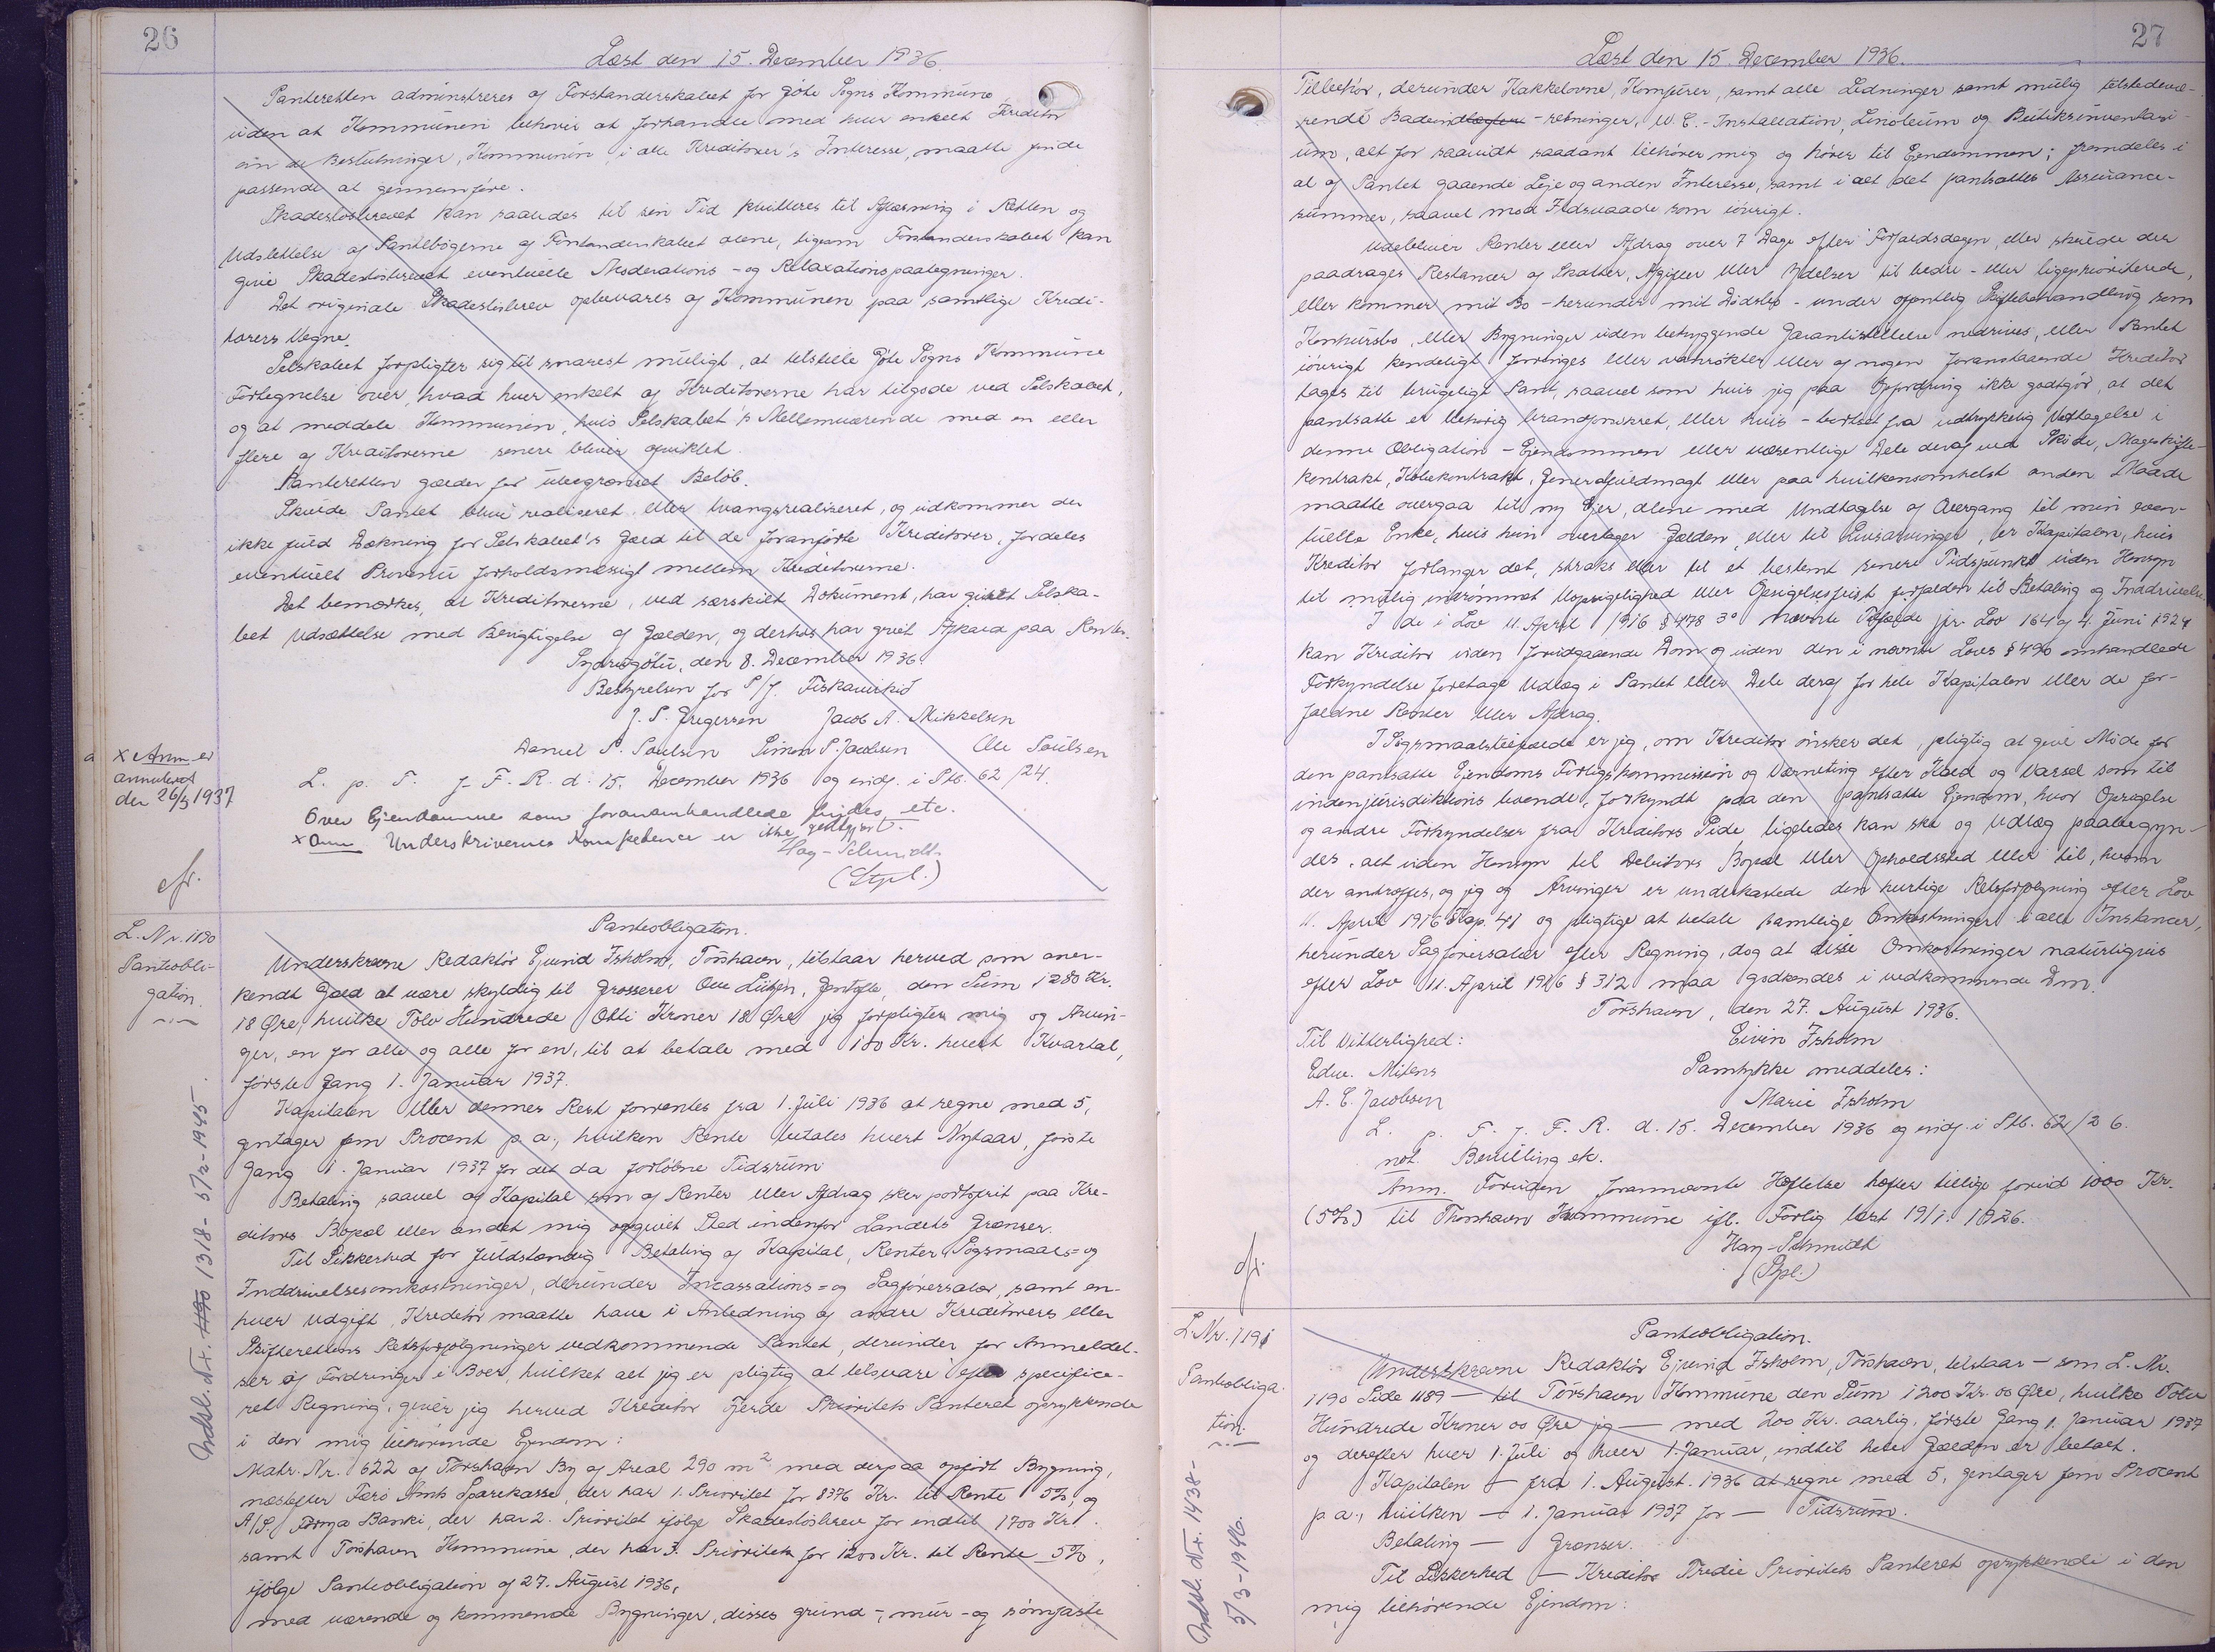 26
Læst den 15. December 1936.
Panteretten adminstreres af Forstanderskabet for Göte Sogns Kommune
uden at Kommunen behøver at forhandle med hver enkelt Kreditor
om de Beslutninger, Kommunen, i alle Kreditorer's Interesse, maatte finde
passende at gennemføre.
Skadesløsbrevet kan saaledes til sin Tid kvitteres til Aflæsning i Retten og
Udslettelse af Pantebøgerne af Forstanderskabet alene, ligesom Forstanderskabet kan
give Skadesløsbrevet eventuelle Moderations- og Relaxationspaategninger.
Det originale Skadesløsbrev opbevares af Kommunen paa samtlige Kredi-
torers Vegne.
Selskabet forpligter sig til snarest muligt, at tilstille Göte Sogns Kommune
Fortegnelse over, hvad hver enkelt af Kreditorerne har tilgode ved Selskabet,
og at meddele Kommunen, hvis Selskabet's Mellemværende med en eller
flere af Kreditorerne senere bliver afviklet.
Panteretten gælder for ubegrænset Beløb.
Skulde Pantet blive realiseret eller tvangsrealiseret, og udkommer der
ikke fuld Dækning for Selskabet's Gæld til de foranførte Kreditorer, fordeles
eventuelt Provenu forholdsmæsigt mellem Kreditorerne.
Det bemærkes, at Kreditorerne, ved særskilt Dokument, har givet Selska-
bet Udsættelse med Berigtigelse af Gælden, og derhos har givet Afkald paa Renter.
Sydrugötu, den 8. December 1936.
Bestyrelsen for P/f. Fiskavirkid
J. P. Gregersen Jacob A. Mikkelsen
Daniel P. Poulsen Simon P. Jacobsen Ole Poulsen
L. p. T. f. F. R. d. 15. December 1936 og indf. i Ptb. 62/24.
Over Ejendomme som foranomhandlede findes etc.
x Anm Underskrivernes Kompetence er ikke godtgjort.
Hay-Schmidt.
(Stpl.)
x Anm er
annuleret
den 26/5 1937
cfr.
L. Nr. 1190
Panteobli-
gation.
Indsl. Nr. 1190 1318- 5/12-1945.
Panteobligation.
Underskrevne Redaktør Ejvind Isholm, Torshavn, tilstaar herved som aner-
kendt Gæld at være skyldig til Grosserer Ove Lützen, Gentofte, den Sum 1280 Kr.
18 Øre, hvilke Tolv Hundrede Otti Kroner 18 Øre jeg forpligter mig og Arvin-
ger, en for alle og alle for en, til at betale med 100 Kr. hvert Kvartal,
første Gang 1. Januar 1937.
Kapitalen eller dennes Rest forrentes fra 1. Juli 1936 at regne med 5,
gentager fem Procent p. a., hvilken Rente betales hvert Nytaar, første
Gang 1. Januar 1937 for det da forløbne Tidsrum.
Betaling saavel af Kapital som af Renter eller Afdrag sker portofrit paa Kre-
ditors Bopæl eller andet mig opgivet Sted indenfor Landets Grænser.
Til Sikkerhed for fuldstændig Betaling af Kapital, Renter, Søgsmaals= og
Inddrivelsesomkostninger, derunder Incassations= og Sagførersalær, samt en-
hver Udgift, Kreditor maatte have i Anledning af andre Kreditorers eller
Skifterettens Retsforfølgninger vedkommende Pantet, derunder for Anmeldel-
ser af Fordringer i Boer, hvilket alt jeg er pligtig at tilsvare efter specifice-
ret Regning, giver jeg herved Kreditor fjerde Prioritets Panteret oprykkende
i den mig tilhørende Ejendom:
Matr. Nr. 622 af Torshavn By af Areal 290 m² med derpaa opført Bygning,
næstefter Færø Amts Sparekasse, der har 1. Prioritet for 8376 Kr. til Rente 5%, og
A/S. Føroya Banki, der har 2. Prioritet ifølge Skadesløsbrev for indtil 1700 Kr.
samt Torshavn Kommune, der har 3. Prioritet for 1200 Kr. til Rente 5%,
ifølge Panteobligation af 27. August 1936,
med værende og kommende Bygninger, disses grund-, mur- og sømfaste
27
Læst den 15. December 1936.
Tilbehør, derunder Kakkelovne, Komfurer, samt alle Ledninger samt mulig tilstedevæ-
rende Badeindretninger, W. C.-Installation, Linoleum og Butiksinventari-
um, alt for saavidt saadant tilhører mig og hører til Ejendommen; fremdeles i
al af Pantet gaaende Leje og anden Interesse, samt i alt det pantsattes Assurance-
summer, saavel mod Ildsvaade som iøvrigt.
Udebliver Renter eller Afdrag over 7 Dage efter Forfaldsdagen, eller skulde der
paadrages Restancer af Skatter, Afgifter eller Ydelser til bedre- eller ligeprioriterede,
eller kommer mit Bo - herunder mit Dødsbo - under offentlig Skiftebehandling som
Konkursbo, eller Bygninger uden betryggende Garantistillelse nedrives, eller Pantet
iøvrigt kendeligt forringes eller vanrøktes eller af nogen foranstaaende Kreditor
tages til brugeligt Pant, saavel som hvis jeg paa Opfordring ikke godtgør, at det
pantsatte er behørig brandforsikret, eller hvis - bortset fra udtrykkelig Vedtagelse i
denne Obligation - Ejendommen eller væsentlige Dele deraf ved Skøde, Mageskifte-
kontrakt, Købekontrakt, Generalfuldmagt eller paa hvilkensomhelst anden Maade
maatte overgaa til ny Ejer, alene med Undtagelse af Overgang til min even-
tuelle Enke, hvis hun overtager Gælden, eller til Livsarvinger, er Kapitalen, hvis
Kreditor forlanger det, straks eller til et bestemt senere Tidspunkt uden Hensyn
til mulig indrømmet Uopsigelighed eller Opsigelsesfrist forfalden til Betaling og Inddrivelse.
I de i Lov 11. April 1916 § 478 3° nævnte Tilfælde jvr. Lov 164 af 4. Juni 1924
kan Kreditor uden forudgaaende Dom og uden den i nævnte Lovs § 490 omhandlede
Forkyndelse foretage Udlæg i Pantet eller Dele deraf for hele Kapitalen eller de for-
faldne Renter eller Afdrag.
I Søgsmaalstilfælde er jeg, om Kreditor ønsker det, pligtig at give Møde for
den pantsatte Ejendoms Forligskommission og Værneting efter Kald og Varsel som til
indenjurisdiktions boende, forkyndt paa den pantsatte Ejendom, hvor Opsigelse
og andre Forkyndelser fra Kreditors Side ligeledes kan ske og Udlæg paabegyn-
des, alt uden Hensyn til Debitors Bopæl eller Opholdssted eller til, hvem
der antræffes, og jeg og Arvinger er underkastede den hurtige Retsforfølgning efter Lov
11. April 1916 Kap. 41 og pligtige at betale samtlige Omkostninger i alle Instancer,
herunder Sagførersalær efter Regning, dog at disse Omkostninger naturligvis
efter Lov 11. April 1916 § 312 maa godkendes i vedkommende Dom.
Torshavn, den 27. August 1936.
Til Vitterlighed: Eivin Isholm
Edw. Mitens Samtykke meddeles:
A. C. Jacobsen Marie Isholm
L. p. T. f. F. R. d. 15. December 1936 og indf. i Ptb. 62/26.
not. Bevilling etc.
Anm. Foruden forannævnte Hæftelse hæfter tillige forud 1000 Kr.
(5%) til Thorshavn Kommune ifl. Forlig læst 19/1. 1926.
Hay-Schmidt
(Stpl.)
cfr.
L. Nr. 1191
Panteobliga-
tion.
Indsl. Nr. 1438-
5/3-1946.
Panteobligation.
Underskrevne Redaktør Ejvind Isholm, Torshavn, tilstaar - som L. Nr.
1190 Side 1189 - til Torshavn Kommune den Sum 1200 Kr. 00 Øre, hvilke Tolv
Hundrede Kroner 00 Øre jeg - med 200 Kr. aarlig, første Gang 1. Januar 1937
og derefter hver 1. Juli og hver 1. Januar, indtil hele Gælden er betalt.
Kapitalen - fra 1. August 1936 at regne med 5, gentager fem Procent
p. a., hvilken - 1. Januar 1937 for - Tidsrum.
Betaling - Grænser.
Til Sikkerhed - Kreditor Tredie Prioritets Panteret oprykkende i den
mig tilhørende Ejendom: